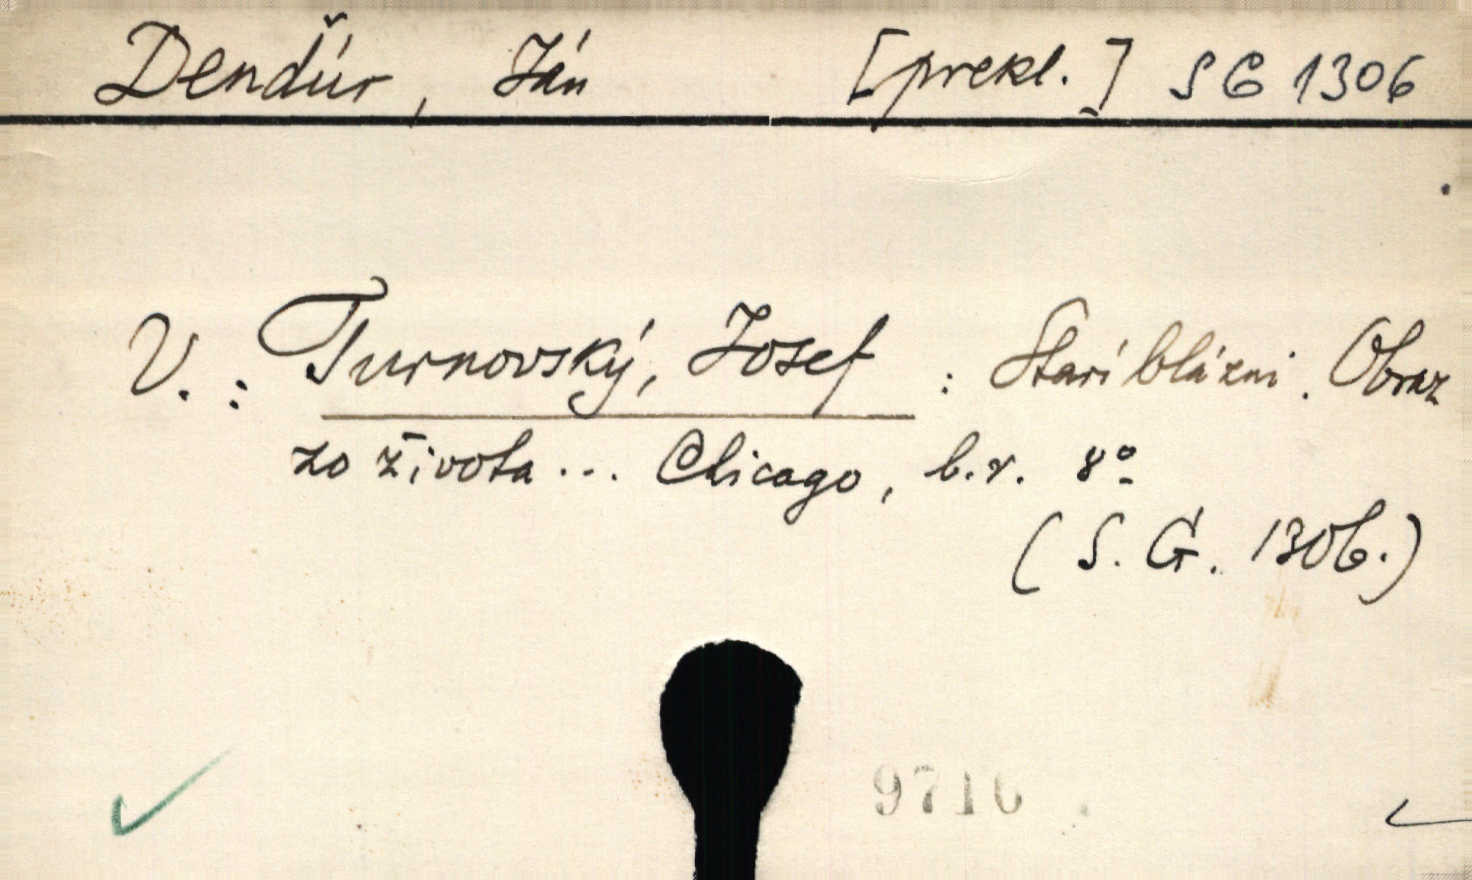 Dendúr, Ján [prekl.] SG 1306
V.: Turnovský, Josef : Starí blázni. Obraz
zo života... Chicago, b.r. 8º
(S. G. 1306.)